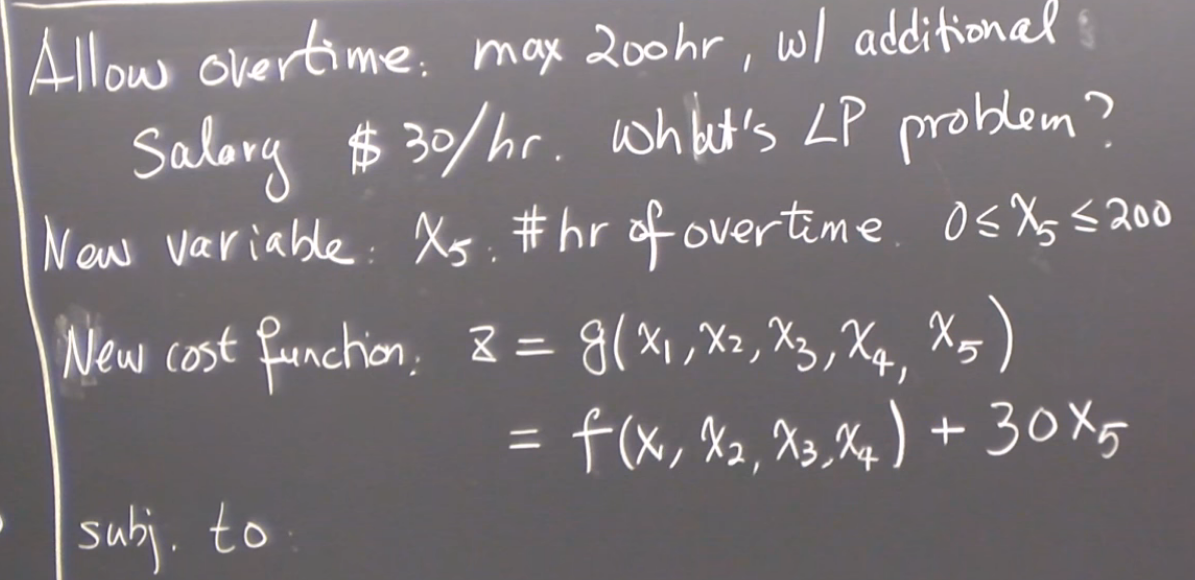 Allow overtime: max 200hr, w/ additional
Salary $30/hr. What's LP problem?
New variable: X₅: #hr of overtime. 0≤X₅≤200
New cost function: z = g(x₁,x₂,x₃,x₄,x₅)
= f(x, x₂, x₃,x₄) + 30x₅
subj. to: